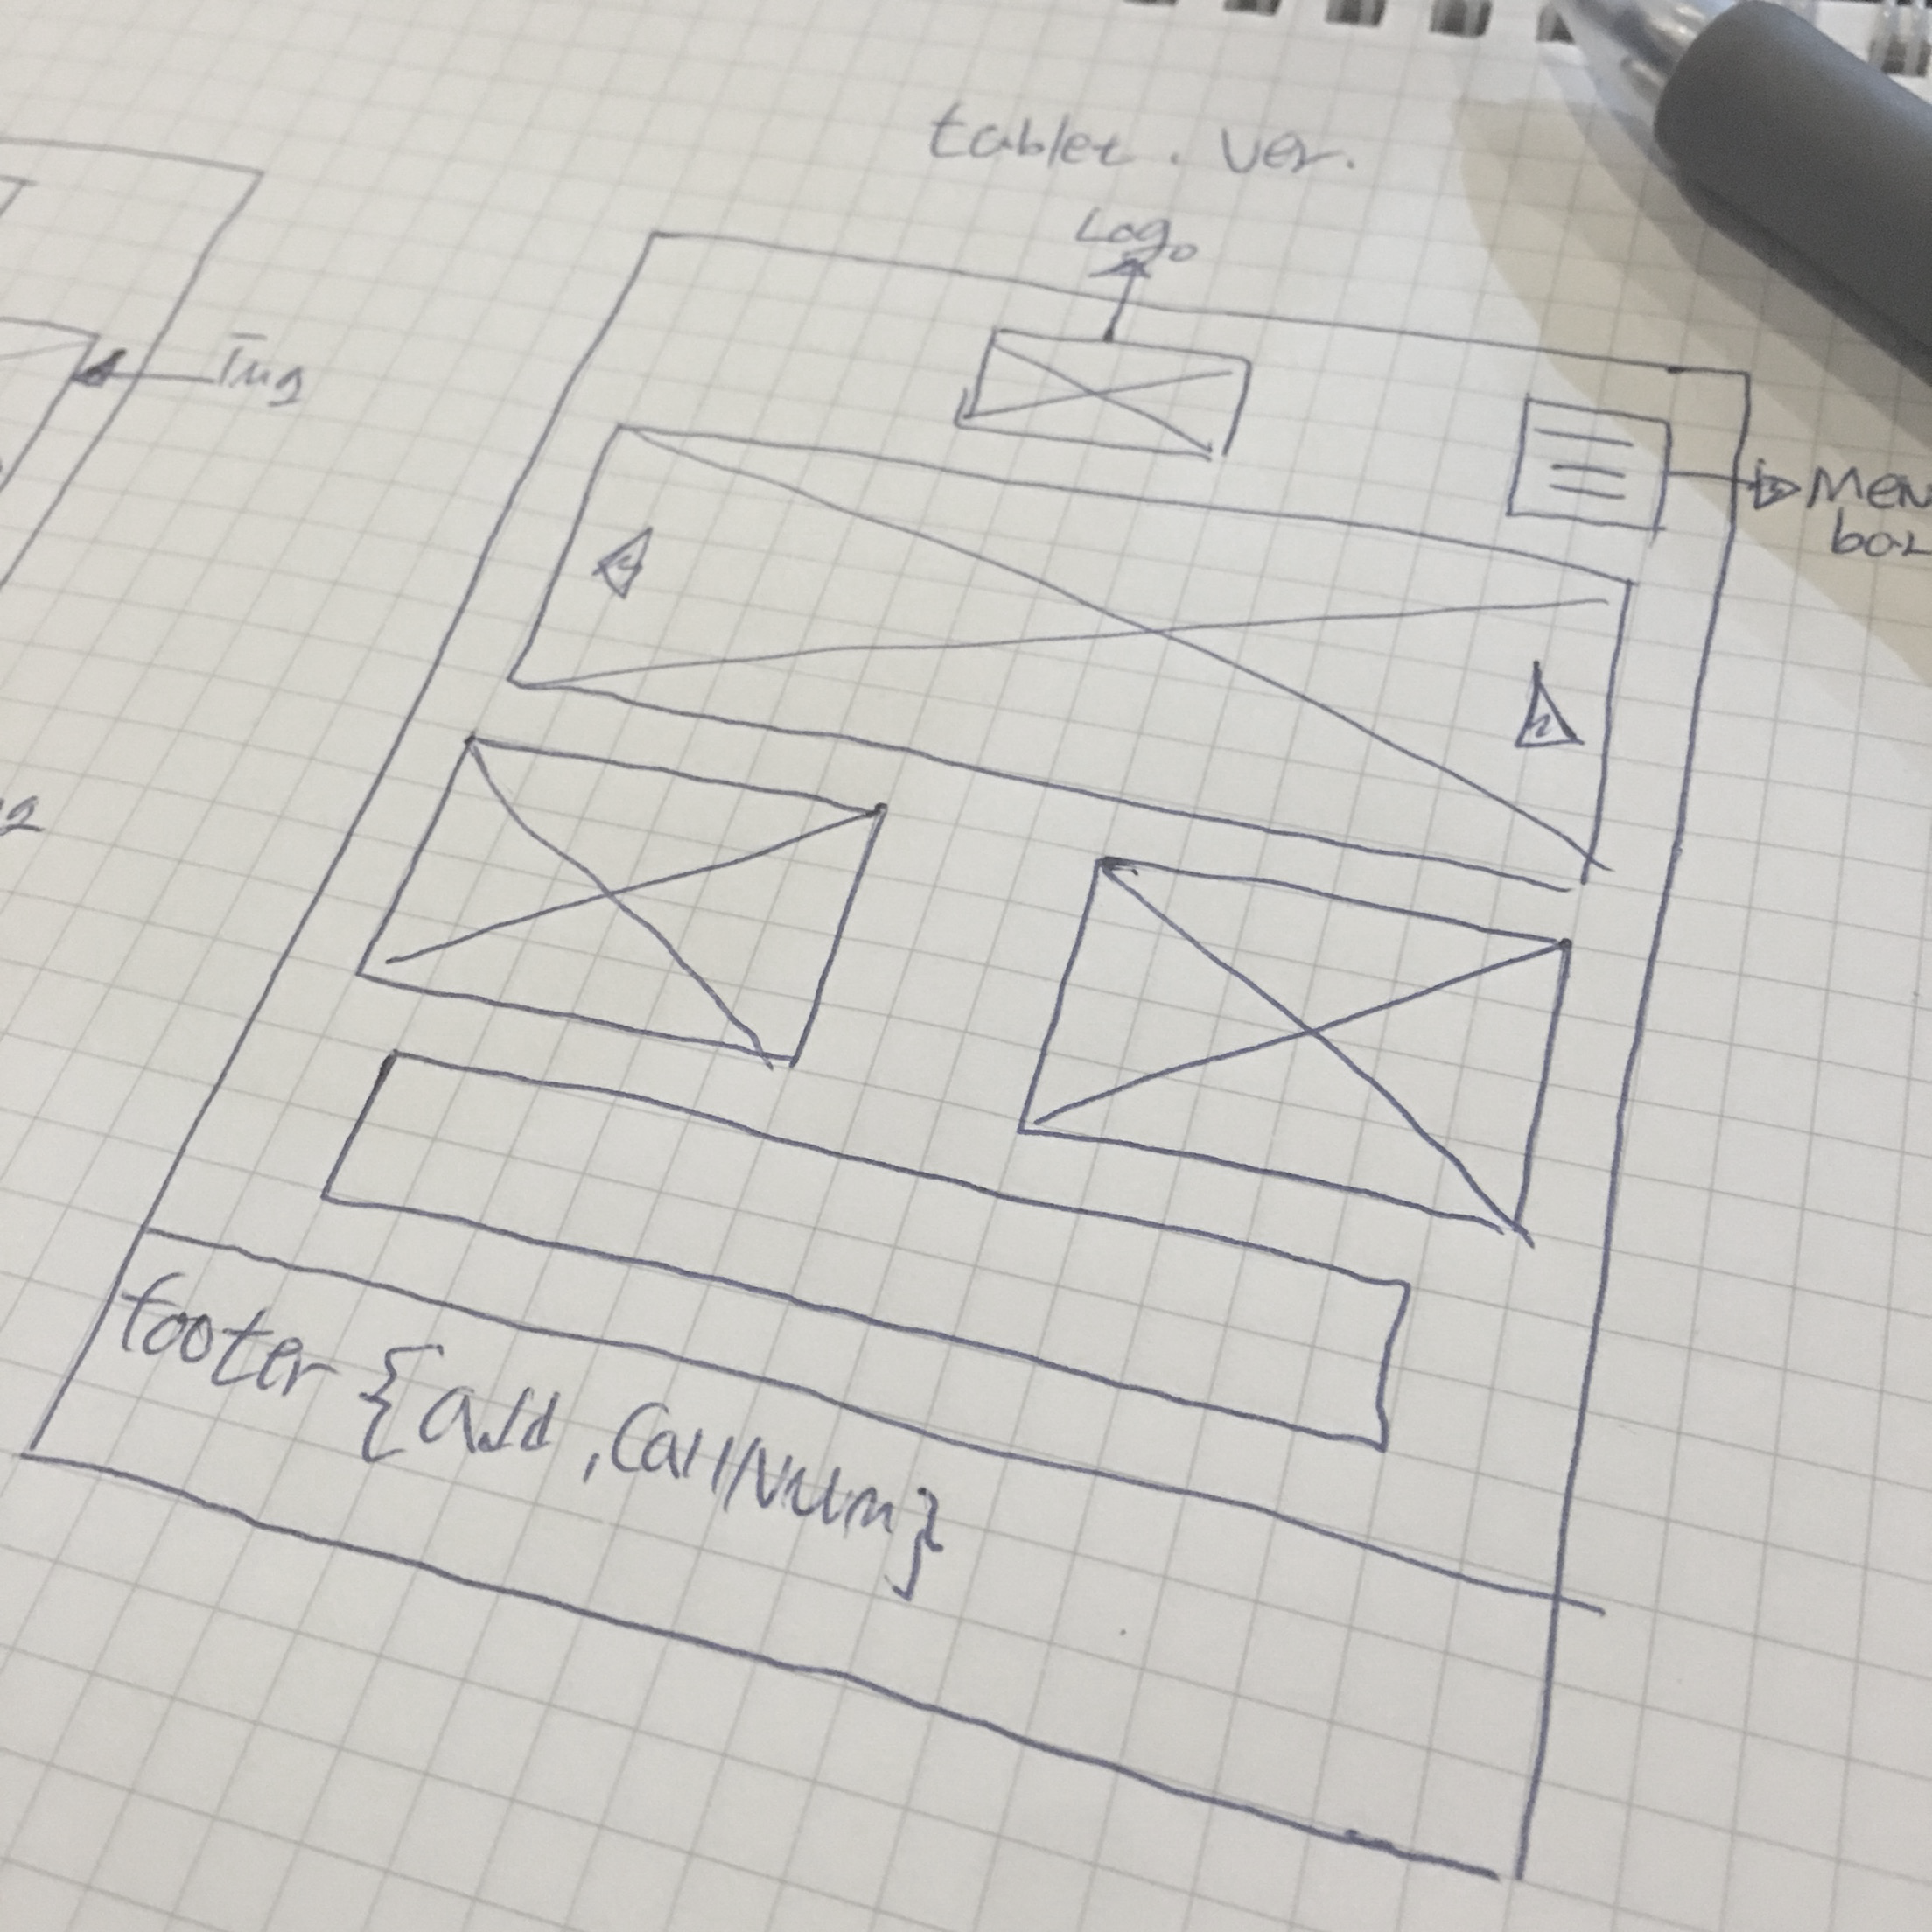 tablet. ver.
Logo
Img
footer {add, CallNum}